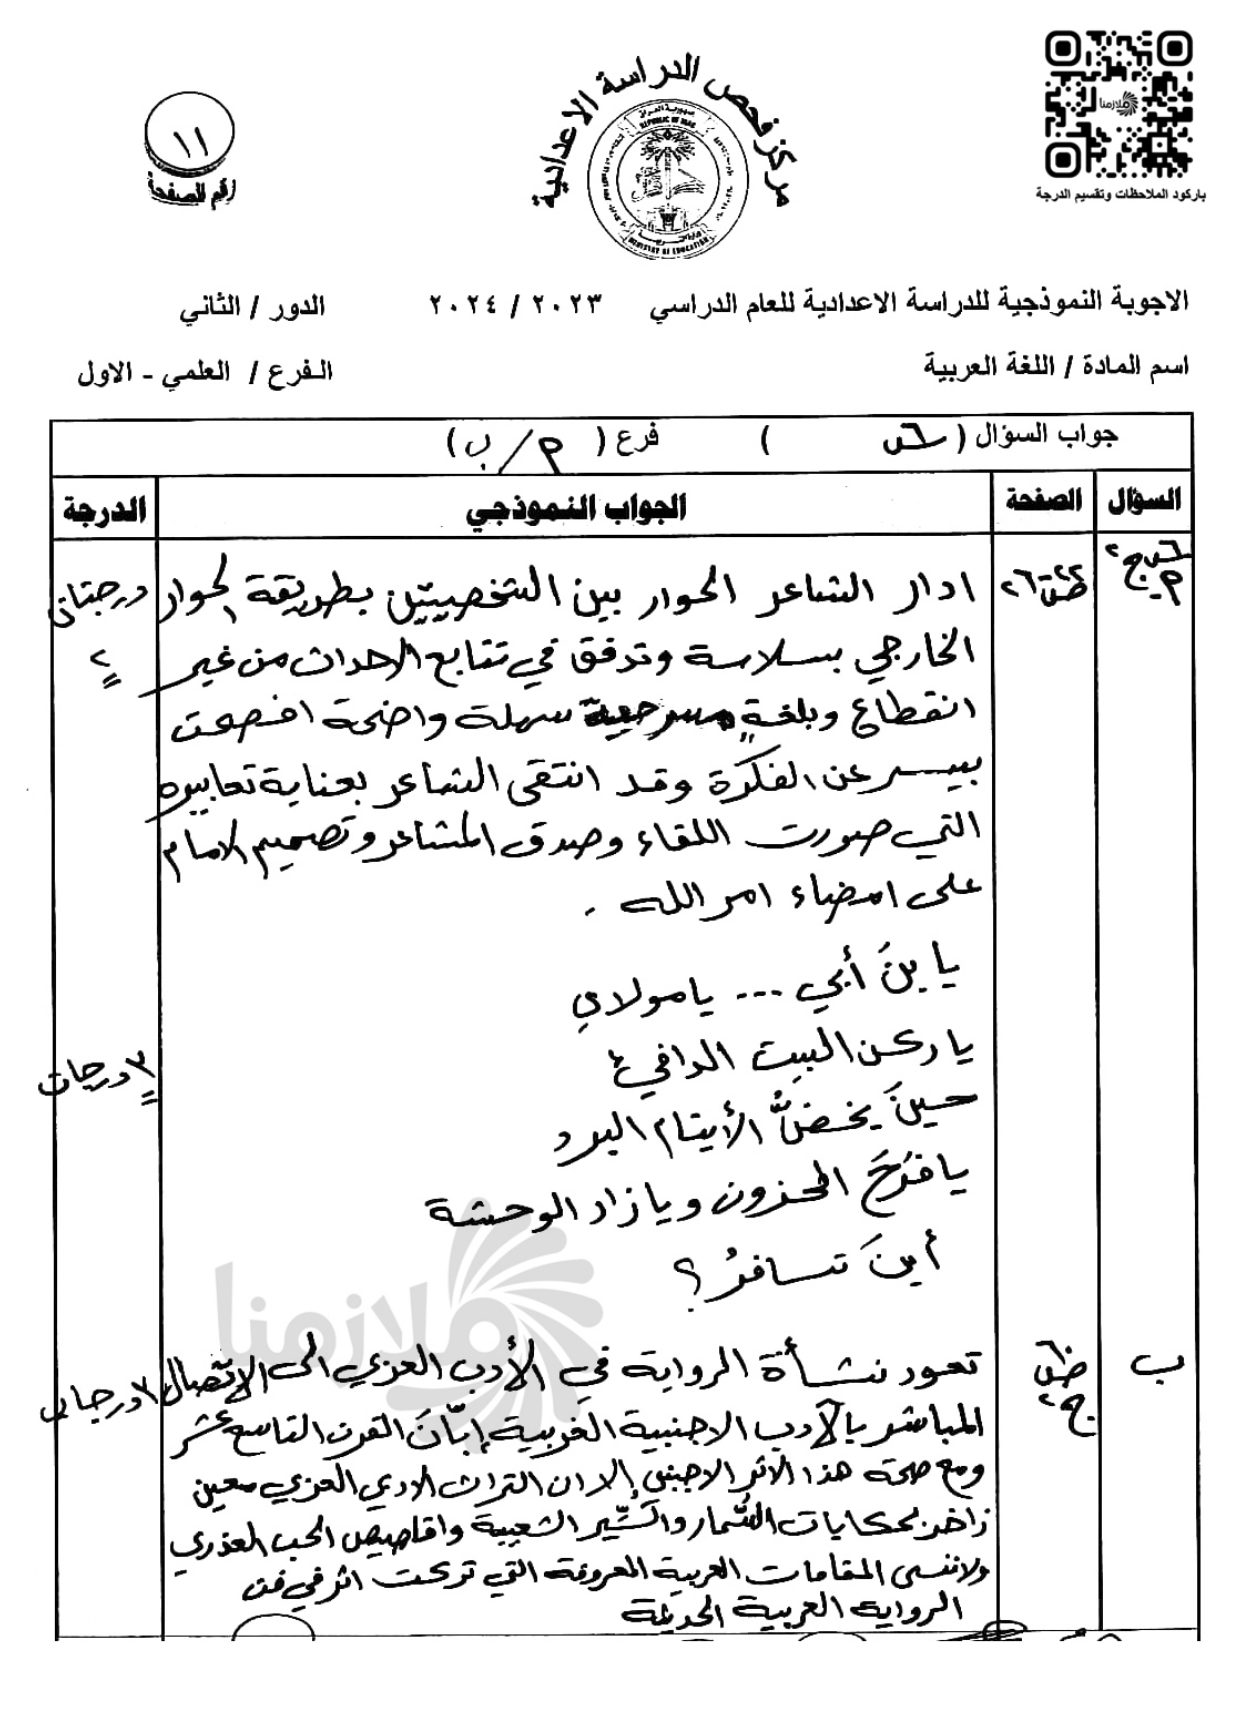 مركز فحص الدراسة الاعدادية
جمهورية العراق
REPUBLIC OF IRAQ
MINISTRY OF EDUCATION
ملازمنا
باركود الملاحظات وتقسيم الدرجة
١١
رقم الصفحة
الاجوبة النموذجية للدراسة الاعدادية للعام الدراسي ٢٠٢٣ / ٢٠٢٤ الدور / الثاني
اسم المادة / اللغة العربية الفرع / العلمي - الاول
جواب السؤال ( س٦ ) فرع ( م / ب )
السؤال الصفحة الجواب النموذجي الدرجة
ادار الشاعر الحوار بين الشخصيتين بطريقة الحوار درجتان
الخارجي بسلاسة وتدفق في تتابع الاحداث من غير ٢
انقطاع وبلغةٍ مسرحية سهلة واضحة افصحت
بيسر عن الفكرة وقد انتقى الشاعر بعناية تعابيره
التي صورت اللقاء وصدق المشاعر وتصميم الامام
على امضاء امر الله .
يا بنَ أبي ... يا مولاي
يا ركن البيت الدافئ
حينَ يخضُّ الأيتام البرد
يا فرَحَ المحزون ويا زاد الوحشة
أينَ تسافرُ ؟
٣ درجات
ب تعود نشأة الرواية في الأدب العربي الى الاتصال ٣ درجات
المباشر بالآداب الاجنبية الغربية إبّانَ القرن التاسع عشر
ومع صحة هذا الاثر الاجنبي إلا ان التراث الادبي العربي معين
زاخر بحكايات السُّمار والسِّير الشعبية واقاصيص الحب العذري
ولاننسى المقامات العربية المعروفة التي تركت اثر في فن
الرواية العربية الحديثة
ملازمنا